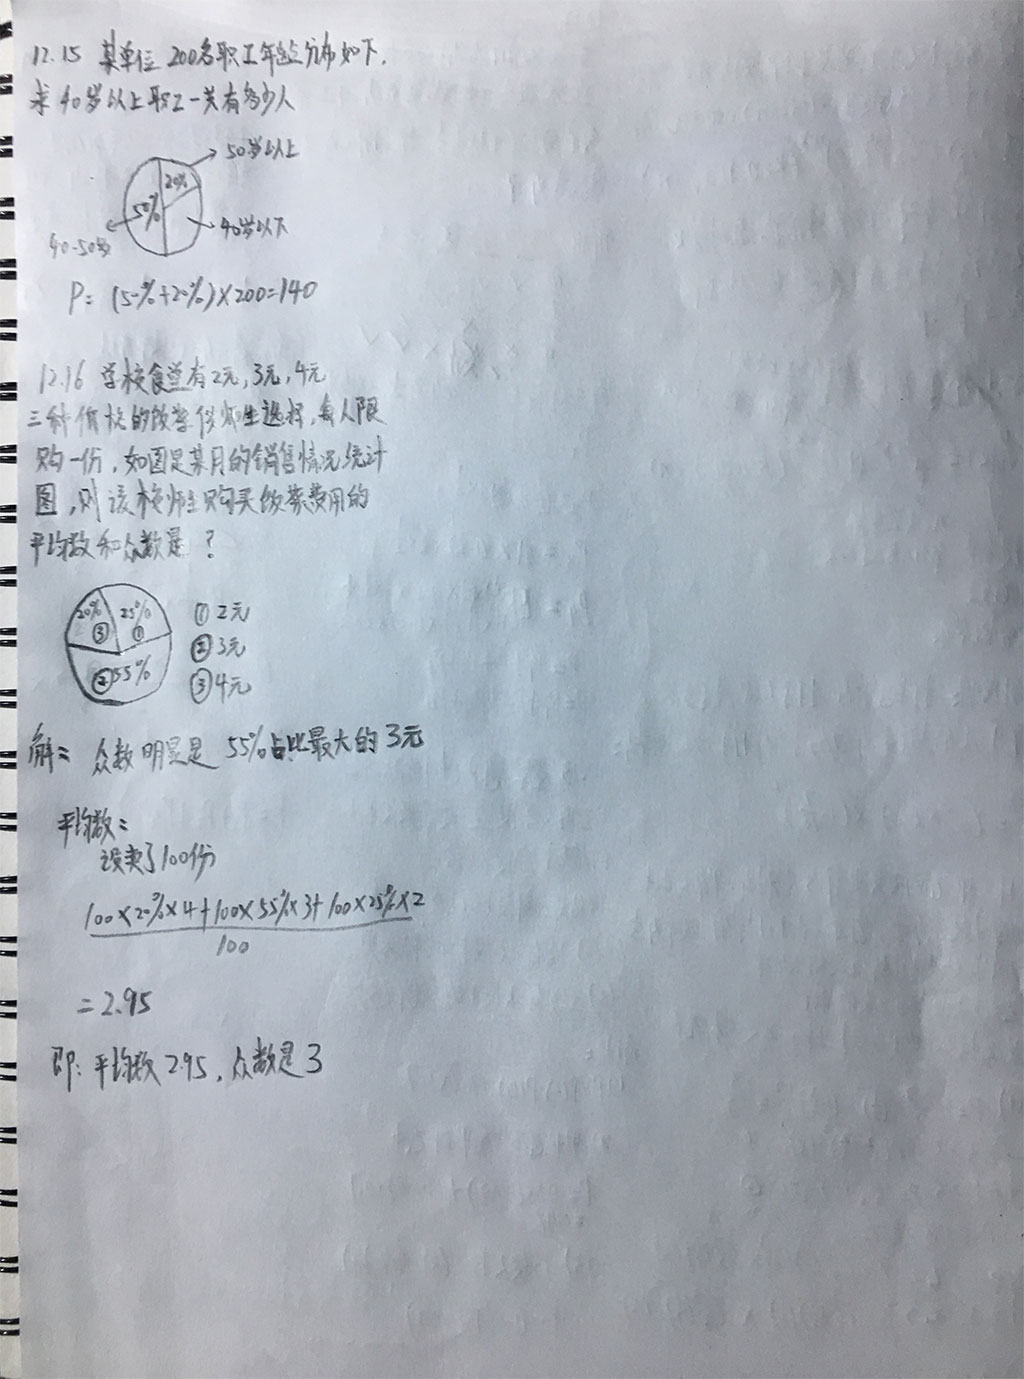 12.15 某单位 200名职工年龄分布如下,
求40岁以上职工一共有多少人
50岁以上
20%
50%
40岁以下
40-50岁
P= (50%+20%)×200=140
12.16 学校食堂有2元,3元,4元
三种价格的饭菜供师生选择,每人限
购一份,如图是某月的销售情况统计
图,则该校师生购买饭菜费用的
平均数和众数是?
20% 25%
③ ①
②55%
① 2元
② 3元
③ 4元
解: 众数明显是 55%占比最大的3元
平均数:
设卖了100份
100×20%×4+100×55%×3+100×25%×2
100
=2.95
即: 平均数2.95, 众数是3